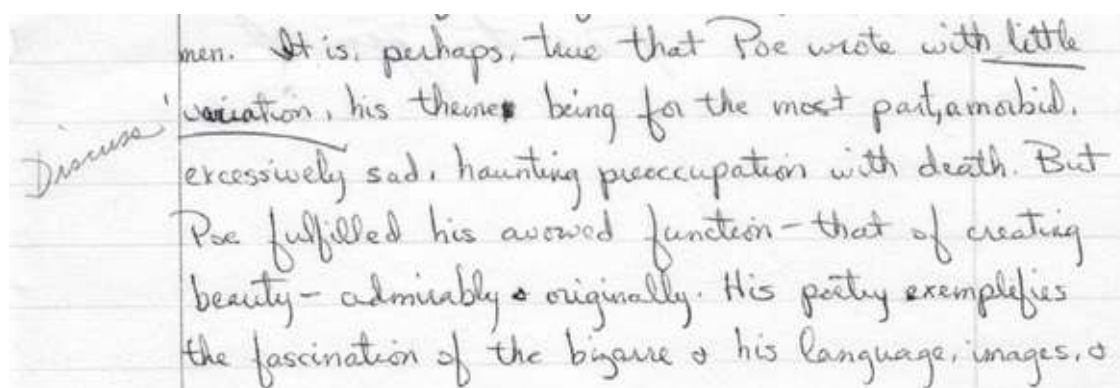 men. It is, perhaps, true that Poe wrote with little
Discuss variation, his theme being for the most part, a morbid,
excessively sad, haunting preoccupation with death. But
Poe fulfilled his avowed function - that of creating
beauty - admirably & originally. His poetry exemplifies
the fascination of the bizarre & his language, images, &